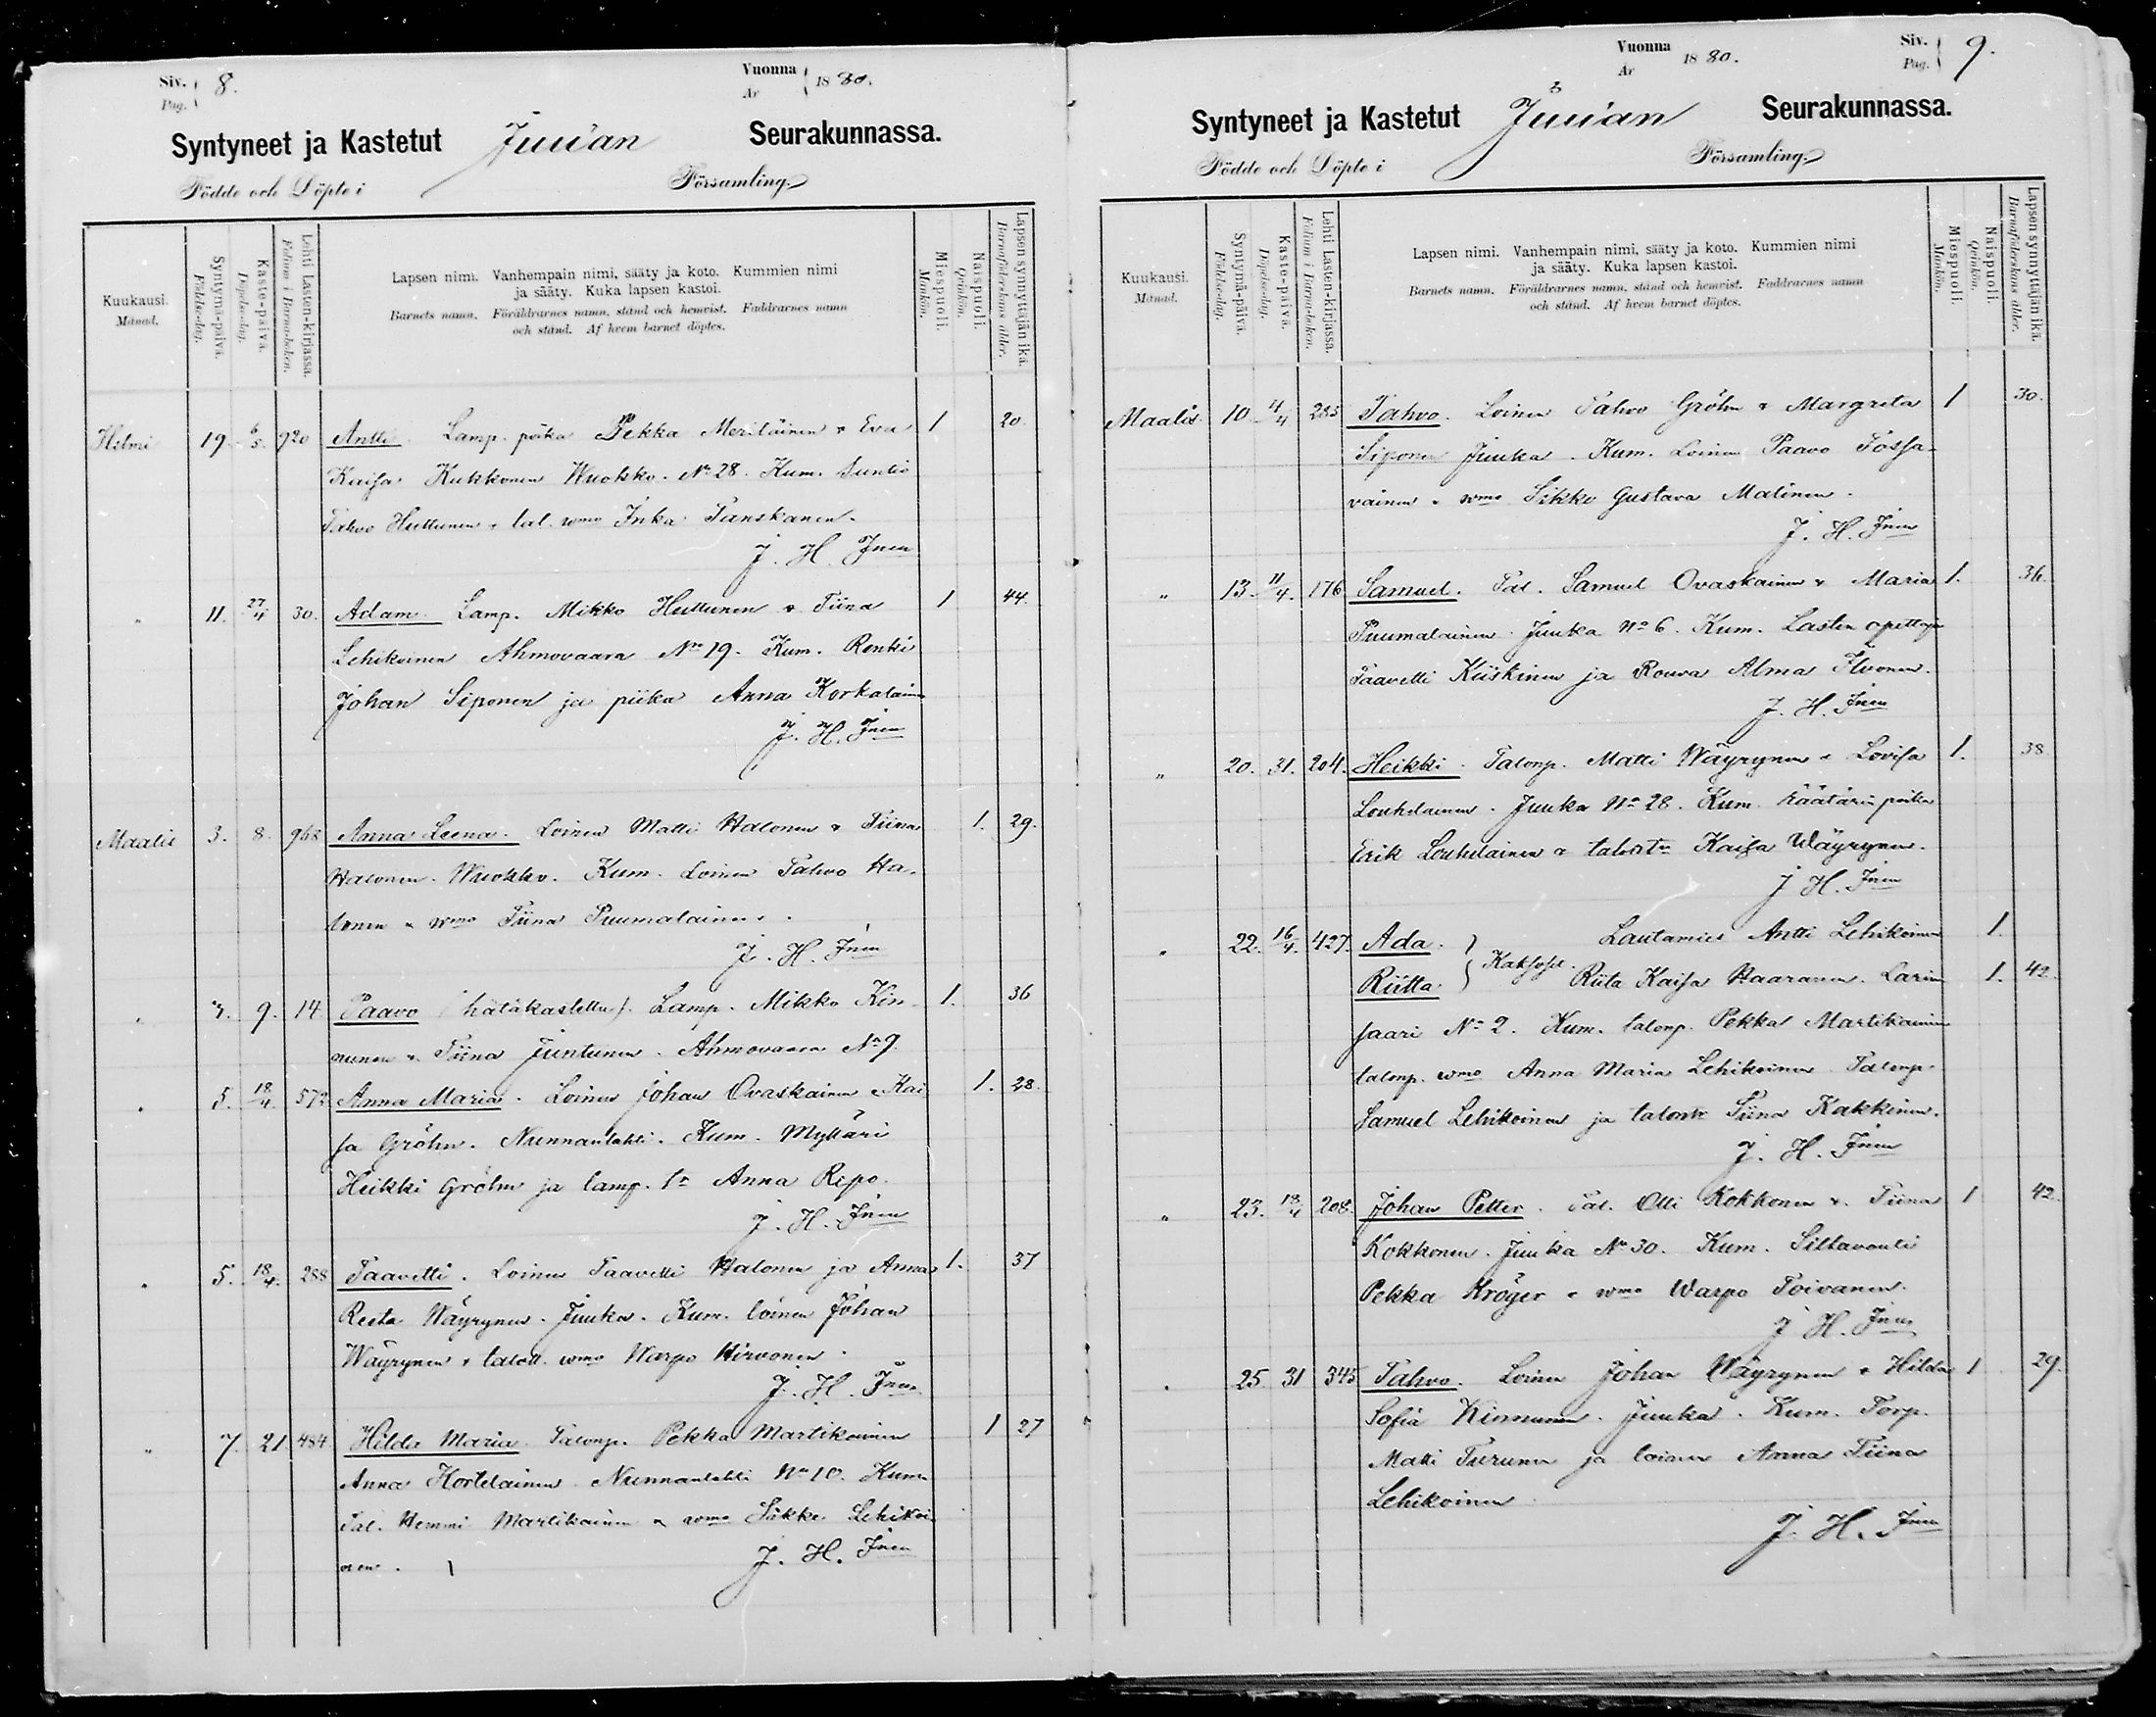 Siv. 8.
Pag.
Vuonna 1880.
År
Syntyneet ja Kastetut Juuan Seurakunnassa.
Födde och Döpte i Församling.
Kuukausi.
Månad.
Syntymä-päivä.
Födelse-dag.
Kaste-päivä.
Döpelse-dag.
Lehti Lasten-kirjassa.
Folium i Barnaboken.
Lapsen nimi. Vanhempain nimi, sääty ja koto. Kummien nimi
ja sääty. Kuka lapsen kastoi.
Barnets namn. Föräldrarnes namn, stånd och hemvist. Faddrarnes namn
och stånd. Af hvem barnet döptes.
Miespuoli.
Mankön.
Naispuoli.
Qvinkön.
Lapsen synnyttäjän ikä.
Barnaföderskans ålder.
Helmi 19. 6/5. 920 Antti. Lamp. poika Pekka Meriläinen & Eva 1 20.
Kaisa Kukkonen Wuokko. No 28. Kum. Suntio
Tahvo Huttunen & tal. wmo Inka Tanskanen.
J. H. Jnen
" 11. 27/4 30. Adam. Lamp. Mikko Huttunen & Tiina 1 44.
Lehikoinen Ahmovaara No 19. Kum. Renki
Johan Siponen ja piika Anna Korkalainen
J. H. Jnen
Maalis 3. 8. 968 Anna Leena. Loinen Matti Halonen & Tiina 1. 29.
Halonen. Wuokko. Kum. Loinen Tahvo Ha-
lonen & wmo Tiina Puumalainen.
J. H. Jnen
" 9. 14 Paavo (hätäkastettu). Lamp. Mikko Kin- 1. 36
nunen & Tiina Juntunen. Ahmovaara No 9.
" 5. 18/4. 572 Anna Maria. Loinen Johan Ovaskainen & Kai 1. 28.
sa Gröhn. Nunnanlahti. Kum. Mylläri
Heikki Gröhn ja lamp. tr Anna Ripo.
J. H. Jnen
" 5. 18/4. 288 Taavetti. Loinen Taavetti Halonen ja Anna 1. 37
Reeta Wäyrynen. Juuka. Kum. loinen Johan
Wäyrynen & talon. wmo Warpo Hirvonen.
J. H. Jnen
" 7. 21 484 Hilda Maria. Talonp. Pekka Martikainen 1 27
Anna Hortelainen. Nunnanlahti No 10. Kum.
Tal. Hemmi Martikainen & wmo Sikke Lehikoi
nen.
J. H. Jnen
Vuonna 1880.
År
Siv. 9.
Pag.
Syntyneet ja Kastetut Juuan Seurakunnassa.
Födde och Döpte i Församling.
Kuukausi.
Månad.
Syntymä-päivä.
Födelse-dag.
Kaste-päivä.
Döpelse-dag.
Lehti Lasten-kirjassa.
Folium i Barnaboken.
Lapsen nimi. Vanhempain nimi, sääty ja koto. Kummien nimi
ja sääty. Kuka lapsen kastoi.
Barnets namn. Föräldrarnes namn, stånd och hemvist. Faddrarnes namn
och stånd. Af hvem barnet döptes.
Miespuoli.
Mankön.
Naispuoli.
Qvinkön.
Lapsen synnyttäjän ikä.
Barnaföderskans ålder.
Maalis 10. 4/4 285 Tahvo. Loinen Tahvo Gröhn & Margreta 1 30.
Siponen Juuka. Kum. Loinen Paavo Tossa-
vainen & wmo Sikke Gustava Matinen.
J. H. Jnen
" 13. 11/4. 176 Samuel. Tal. Samuel Ovaskainen & Maria 1. 36.
Puumalainen. Juuka No 6. Kum. Lasten opettaja
Taavetti Kiiskinen ja Rouva Alma Ilvonen.
J. H. Jnen
" 20. 31. 204. Heikki. Talonp. Matti Wäyrynen & Lovisa 1. 38
Louhelainen. Juuka No 28. Kum. räätärin poika
Erik Louhelainen & talont. Kaisa Wäyrynen.
J. H. Jnen
" 22. 16/4. 427. Ada. Lautamies Antti Lehikoinen 1.
Riitta. Kaksoset. Riita Kaisa Haaranen. Larin 1. 42.
saari No 2. Kum. talonp. Pekka Martikainen
talonp. wmo Anna Maria Lehikoinen. Talonp.
Samuel Lehikoinen ja talont. Tiina Kakkinen.
J. H. Jnen
" 23. 18/4 208. Johan Petter. Tal. Olli Kokkonen & Tiina 1 42.
Kokkonen. Juuka No 30. Kum. Siltavouti
Pekka Kröger & wmo Warpo Toivanen.
J. H. Jnen
" 25. 31 345 Tahvo. Loinen Johan Wäyrynen & Hilda 1 29.
Sofia Kinnunen. Juuka. Kum. Torp.
Matti Turunen ja loinen Anna Tiina
Lehikoinen.
J. H. Jnen